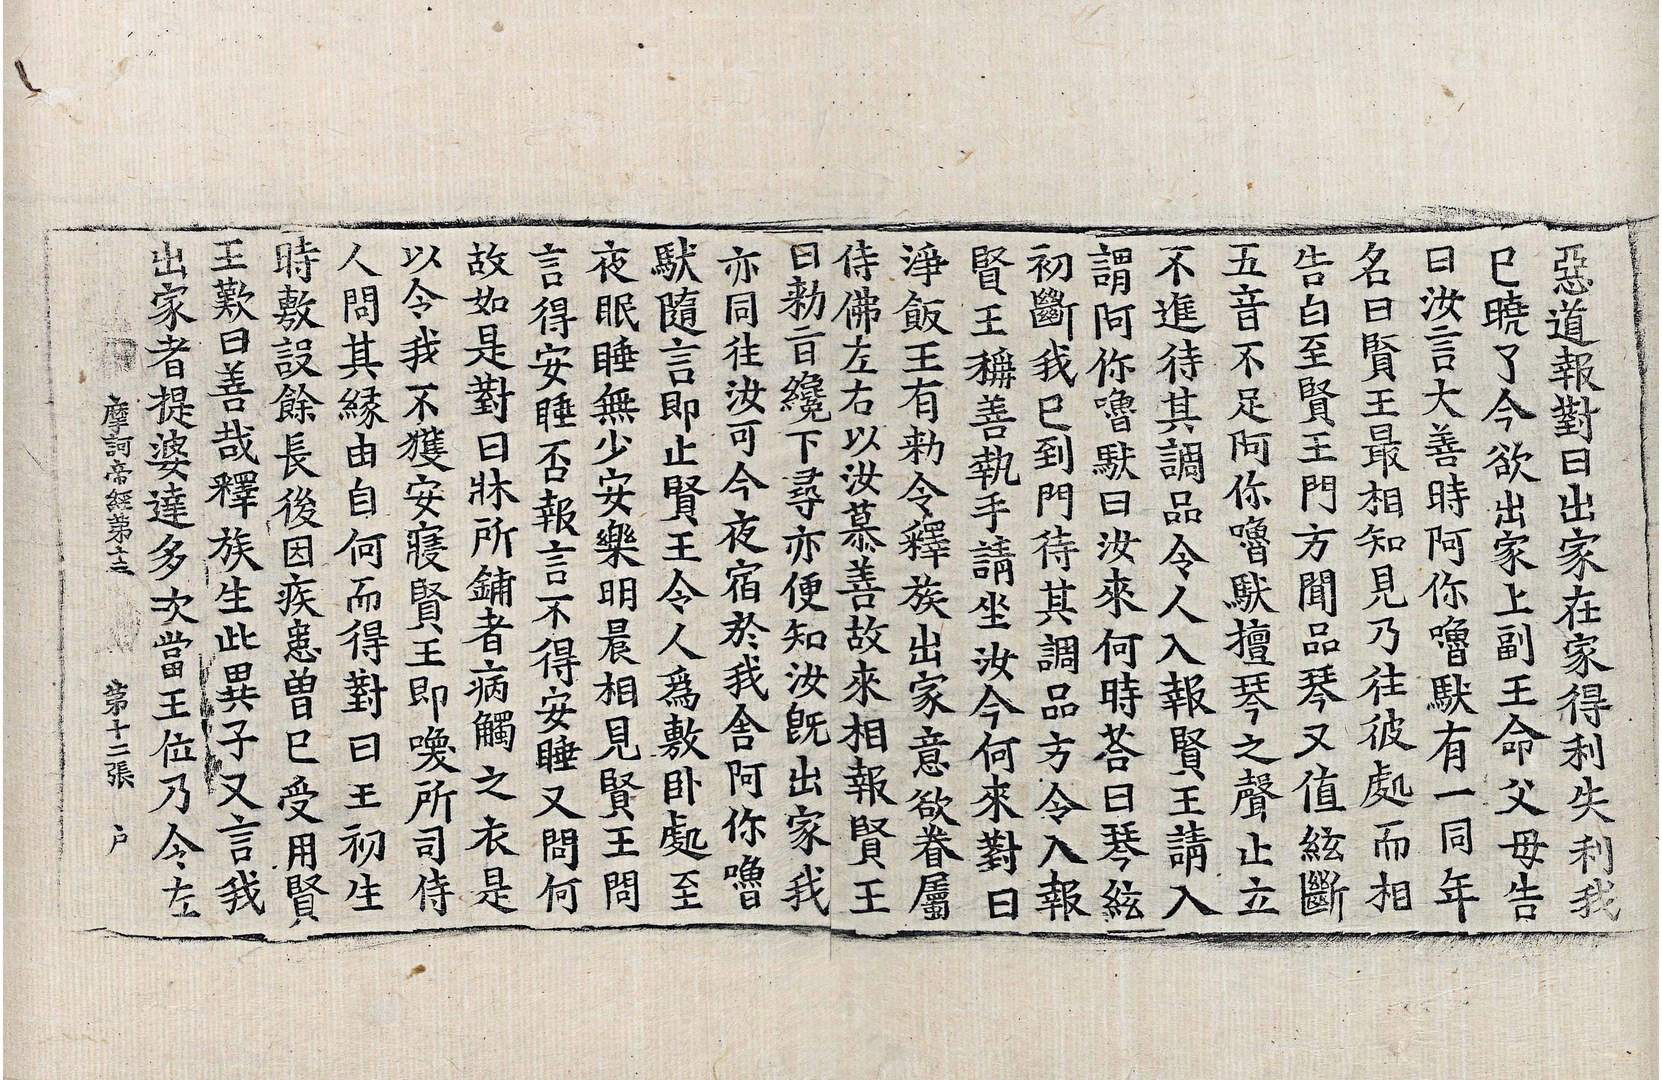 惡道報對曰出家在家得利失利我
已曉了今欲出家上副王命父母告
曰汝言大善時阿你嚕馱有一同年
名曰賢王最相知見乃往彼處而相
告白至賢王門方聞品琴又值絃斷
五音不足阿你嚕馱擅琴之聲止立
不進待其調品令人入報賢王請入
謂阿你嚕馱曰汝來何時荅曰琴絃
初斷我已到門待其調品方令入報
賢王稱善執手請坐汝今何來對曰
淨飯王有勑令釋族出家意欲眷屬
侍佛左右以汝慕善故來相報賢王
曰勑旨纔下尋亦便知汝旣出家我
亦同往汝可今夜宿於我舍阿你嚕
馱隨言即止賢王令人爲敷卧處至
夜眠睡無少安樂明晨相見賢王問
言得安睡否報言不得安睡又問何
故如是對曰牀所鋪者病觸之衣是
以令我不獲安寢賢王即喚所司侍
人問其緣由自何而得對曰王初生
時敷設餘長後因疾患曽已受用賢
王歎曰善哉釋族生此異子又言我
出家者提婆達多次當王位乃令左
摩訶帝經第十三 第十二張 户